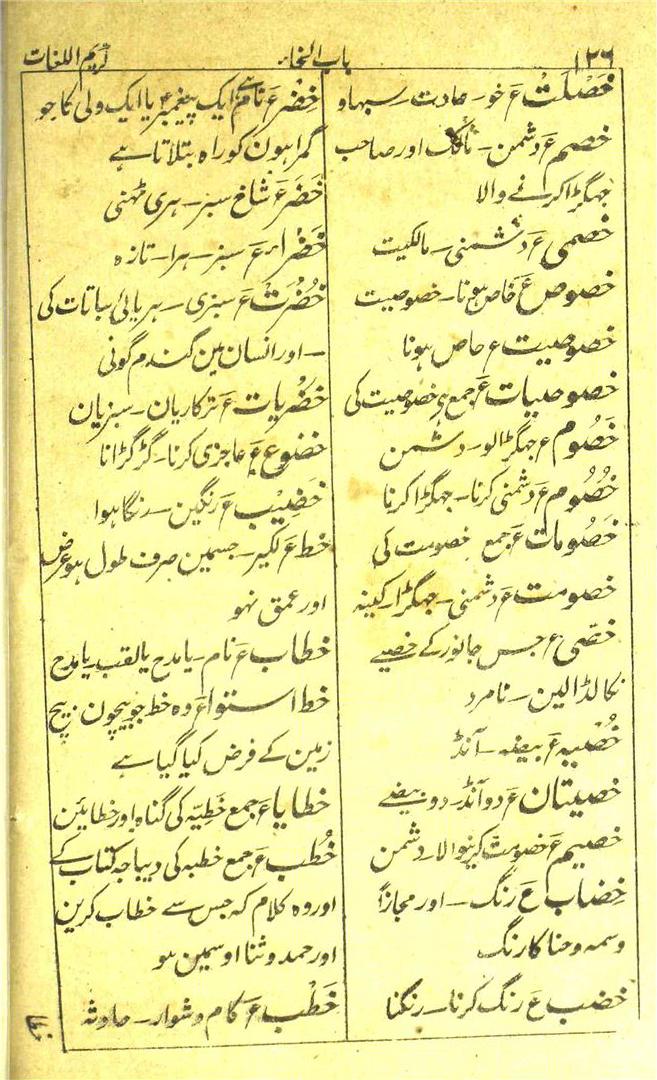 ۱۲۶
باب الخاء
کریم اللغات
خَصْلَتْ ع خو۔ عادت۔ سبہاو
خصم ع دشمن۔ مالک اور صاحب
جہگڑا کرانے والا
خصمی ع دشمنی۔ مالکیت
خصوص ع خاص ہونا۔ خصوصیت
خصوصیت ع خاص ہونا
خصوصیات ع جمع ہی خصوصیت کی
خَصُوم ع جہگڑالو۔ دشمن
خُصُوم ع دشمنی کرنا۔ جہگڑا کرنا
خَصُومات ع جمع خصومت کی
خصومت ع دشمنی۔ جہگڑا۔ کینہ
خصّی ع جس جانور کے خصیے
نکال ڈالین۔ نامرد
خُصْیہ ع بیضہ۔ آنڈ
خصیتان ع دو آنڈ۔ دو بیضے
خصیم ع خصومت کرنیوالا۔ دشمن
خِضاب ع رنگ۔ اور مجازاً
وسمہ و حنا کا رنگ
خضب ع رنگ کرنا۔ رنگنا
خِضْر ع نام ہے ایک پیغمبر یا ایک ولی کا جو
گمراہون کو راہ بتلاتا ہے
خَضَر ع شاخ سبز۔ ہری ٹہنی
خَضْراء ع سبز۔ ہرا۔ تازہ
خُضْرَتْ ع سبزی۔ ہریائی نباتات کی
۔ اور انسان مین گندم گونی
خضْریات ع ترکاریان۔ سبزیان
خضوع ع عاجزی کرنا۔ گڑگڑانا
خَضِیْب ع رنگین۔ رنگا ہوا
خط ع لکیر۔ جسمین صرف طول ہو عرض
اور عمق نہو
خطاب ع نام۔ یا مدح یا لقب۔ یا مدح
خط استوا ع وہ خط جو بیچون بیچ
زمین کے فرض کیا گیا ہے
خطایا ع جمع خطیّہ کی گناہ اور خطایئن
خُطَب ع جمع خطبہ کی دیباچہ کتاب کے
اور وہ کلام کہ جس سے خطاب کرین
اور حمد و ثنا اوسمین ہو
خَطْب ع کام دشوار۔ حادثہ